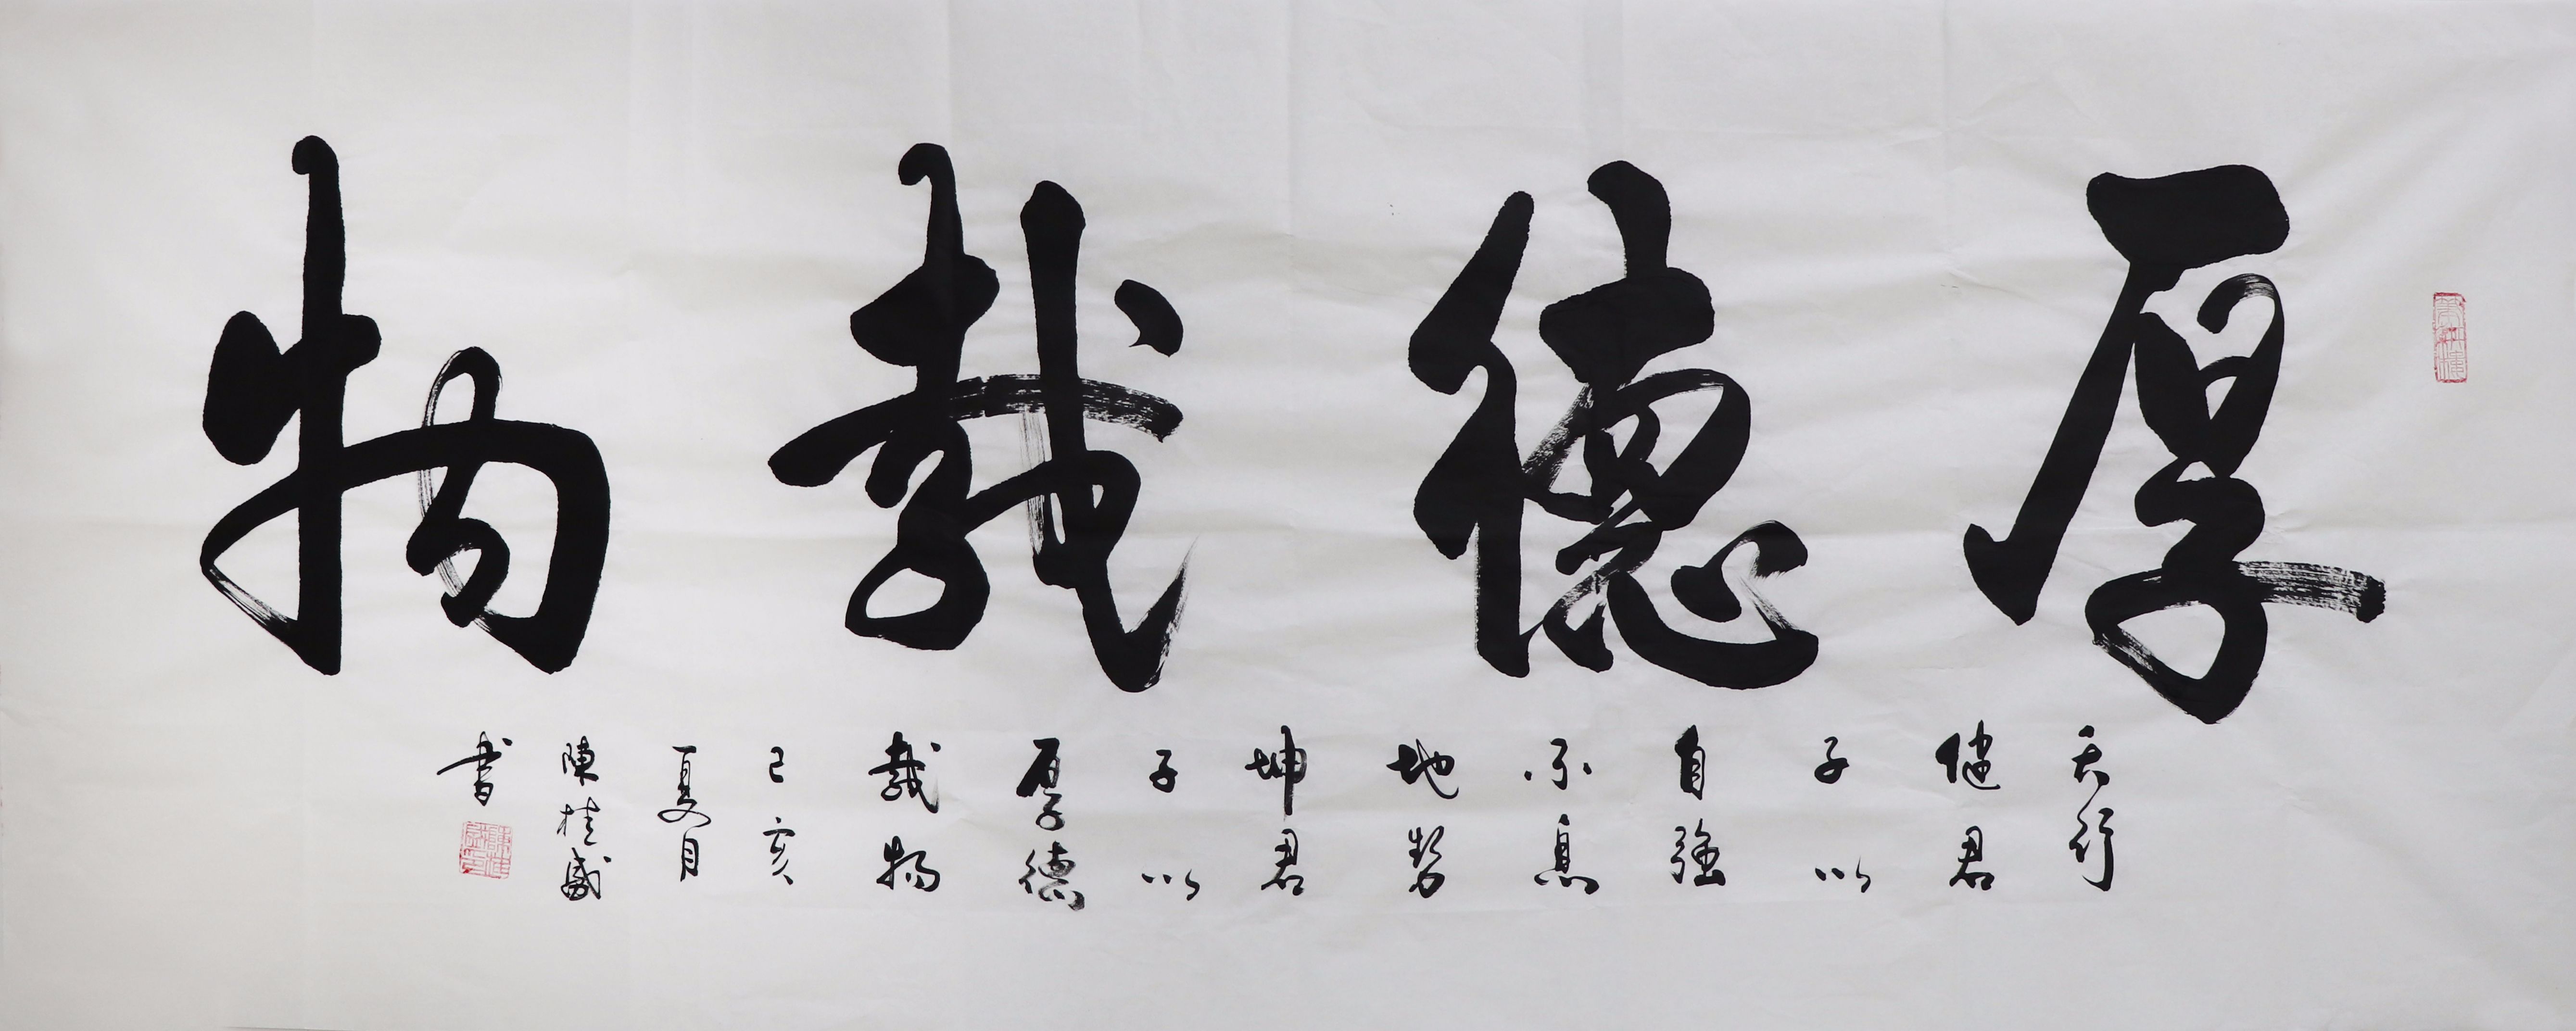 厚德載物
天行
健君
子以
自強
不息
地勢
坤君
子以
厚德
載物
己亥
夏月
陳桂盛
書